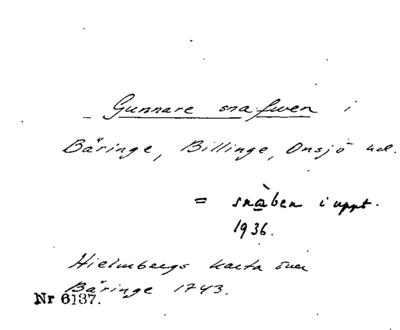 Gunnare snafwen i
Bäringe, Billinge, Onsjö hd.
= snàben i uppt.
1936.
Hielmbergs karta över
Bäringe 1743.
Nr 6137.